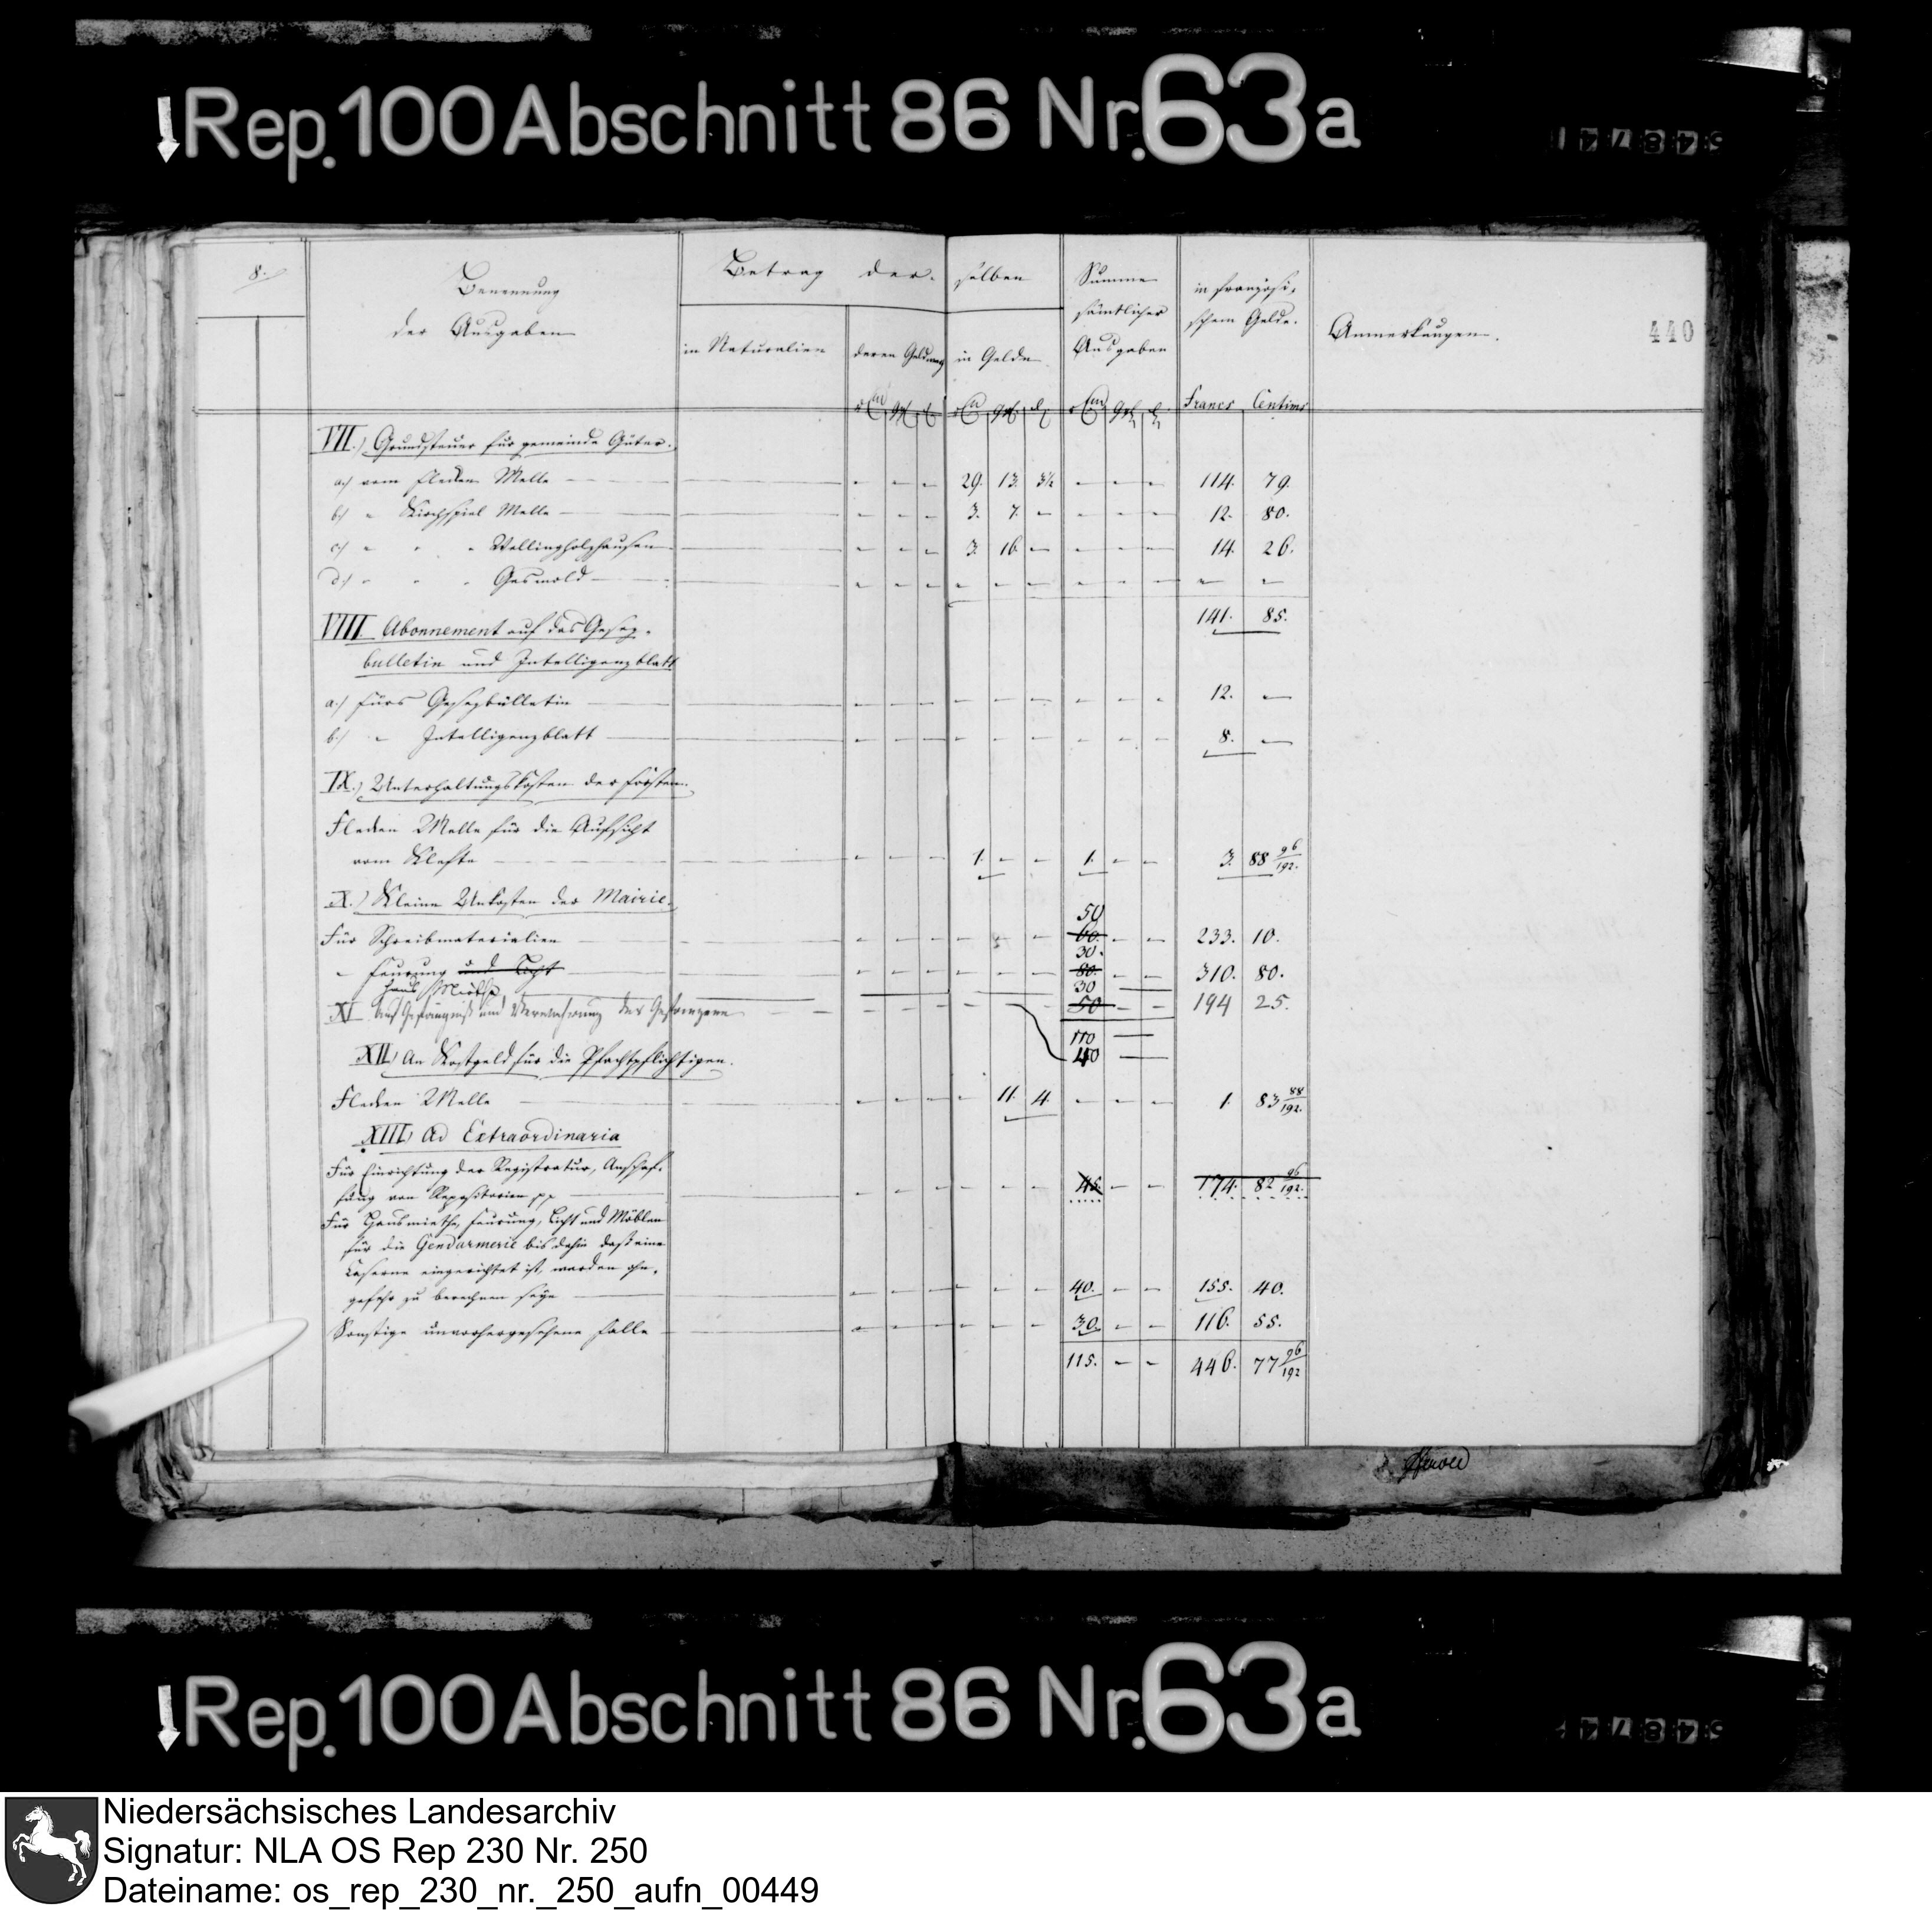 Rep. 100 Abschnitt 86 Nr. 63a
8.
Benennung
der Ausgaben
Betrag der-
selben
in Naturalien
deren Geldwerth
in Gelde
Summe
sämtlicher
Ausgaben
in französi-
schem Gelde.
Francs Centims
Anmerkungen.
440
VII.) Grundsteuer für gemeinde Güter.
a.) vom Flecken Melle 29. 13. 3½ 114. 79.
b.) " Kirchspiel Melle 3. 7. - 12. 80.
c.) " " " Wellingholzhausen 3. 16 - 14. 26.
d.) " " " Gesmold - -
141. 85.
VIII. Abonnement auf das Gesez-
bulletin und Intelligenzblatt
a.) fürs Gesezbülletin 12. -
b.) " Intelligenzblatt 8. -
IX.) Unterhaltungskosten der Forsten.
Flecken Melle für die Aufsicht
vom Klefte 1. - - 1. - - 3. 88 96/192.
X.) Kleine Unkosten der Mairie.
50
Für Schreibmaterialien 60. - - 233. 10.
30.
" Feurung und Licht 80. - - 310. 80.
Haus Miethe 30
XI Auf Gefängniß und Verwahrung der Gefangene 50 - - 194 25.
110
XII.) An Kostgeld für die Pfachtpflichtigen. 40
Flecken Melle 11. 4. 1. 83 88/192.
XIII.) Ad Extraordinaria
Für Einrichtung der Registratur, Anschaf-
fung von Repositorien pp 45. - - 174. 82 96/192.
Für Hausmiethe, Feurung, Licht und Möblen
für die Gendarmerie bis dahin daß eine
Caserne eingerichtet ist, werden ohn-
gefehr zu berechnen seyn 40. - - 155. 40.
Sonstige unvorhergesehene Fälle 30. - - 116. 55.
115. - - 446. 77 96/192
Rep. 100 Abschnitt 86 Nr. 63a
Niedersächsisches Landesarchiv
Signatur: NLA OS Rep 230 Nr. 250
Dateiname: os_rep_230_nr._250_aufn_00449